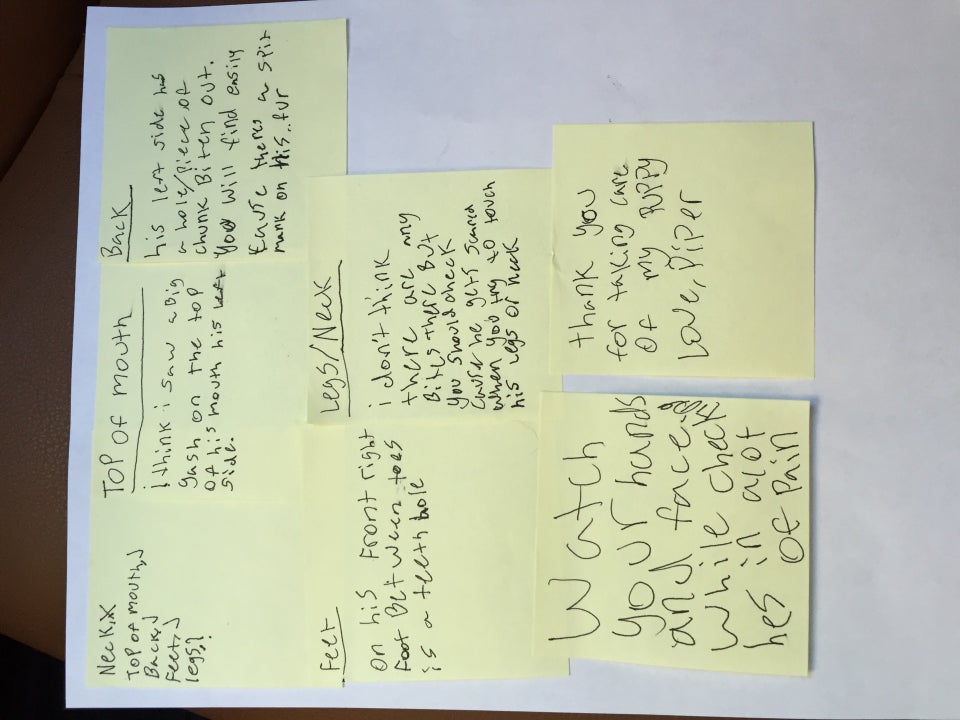 Neck,X
TOP OF mouth,✓
Back,✓
Feet,✓
legs,?
TOP OF mouth
i think i saw a Big
gash on the top
of his mouth his left
side.
Back
his left side has
a hole/piece of
chunk Biten out.
You will find easily
cause theres a spit
mark on his..fur
Feet
on his Front right
foot Between toes
is a teeth hole
Legs/Neck
i don't think
there are any
Bites there But
you should check
cause he gets scared
when you try to touch
his legs or neck
Watch
your hands
and face
while check
in alot
hes OF Pain
thank you
for taking care
OF my PUPPY
Love, PiPer